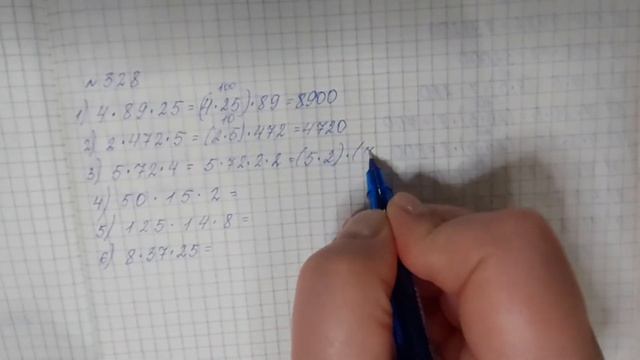 № 328
100
1) 4 · 89 · 25 = (4 · 25) · 89 = 8900
10
2) 2 · 472 · 5 = (2 · 5) · 472 = 4720
3) 5 · 72 · 4 = 5 · 72 · 2 · 2 = (5 · 2) · (
4) 50 · 15 · 2 =
5) 125 · 14 · 8 =
6) 8 · 37 · 25 =